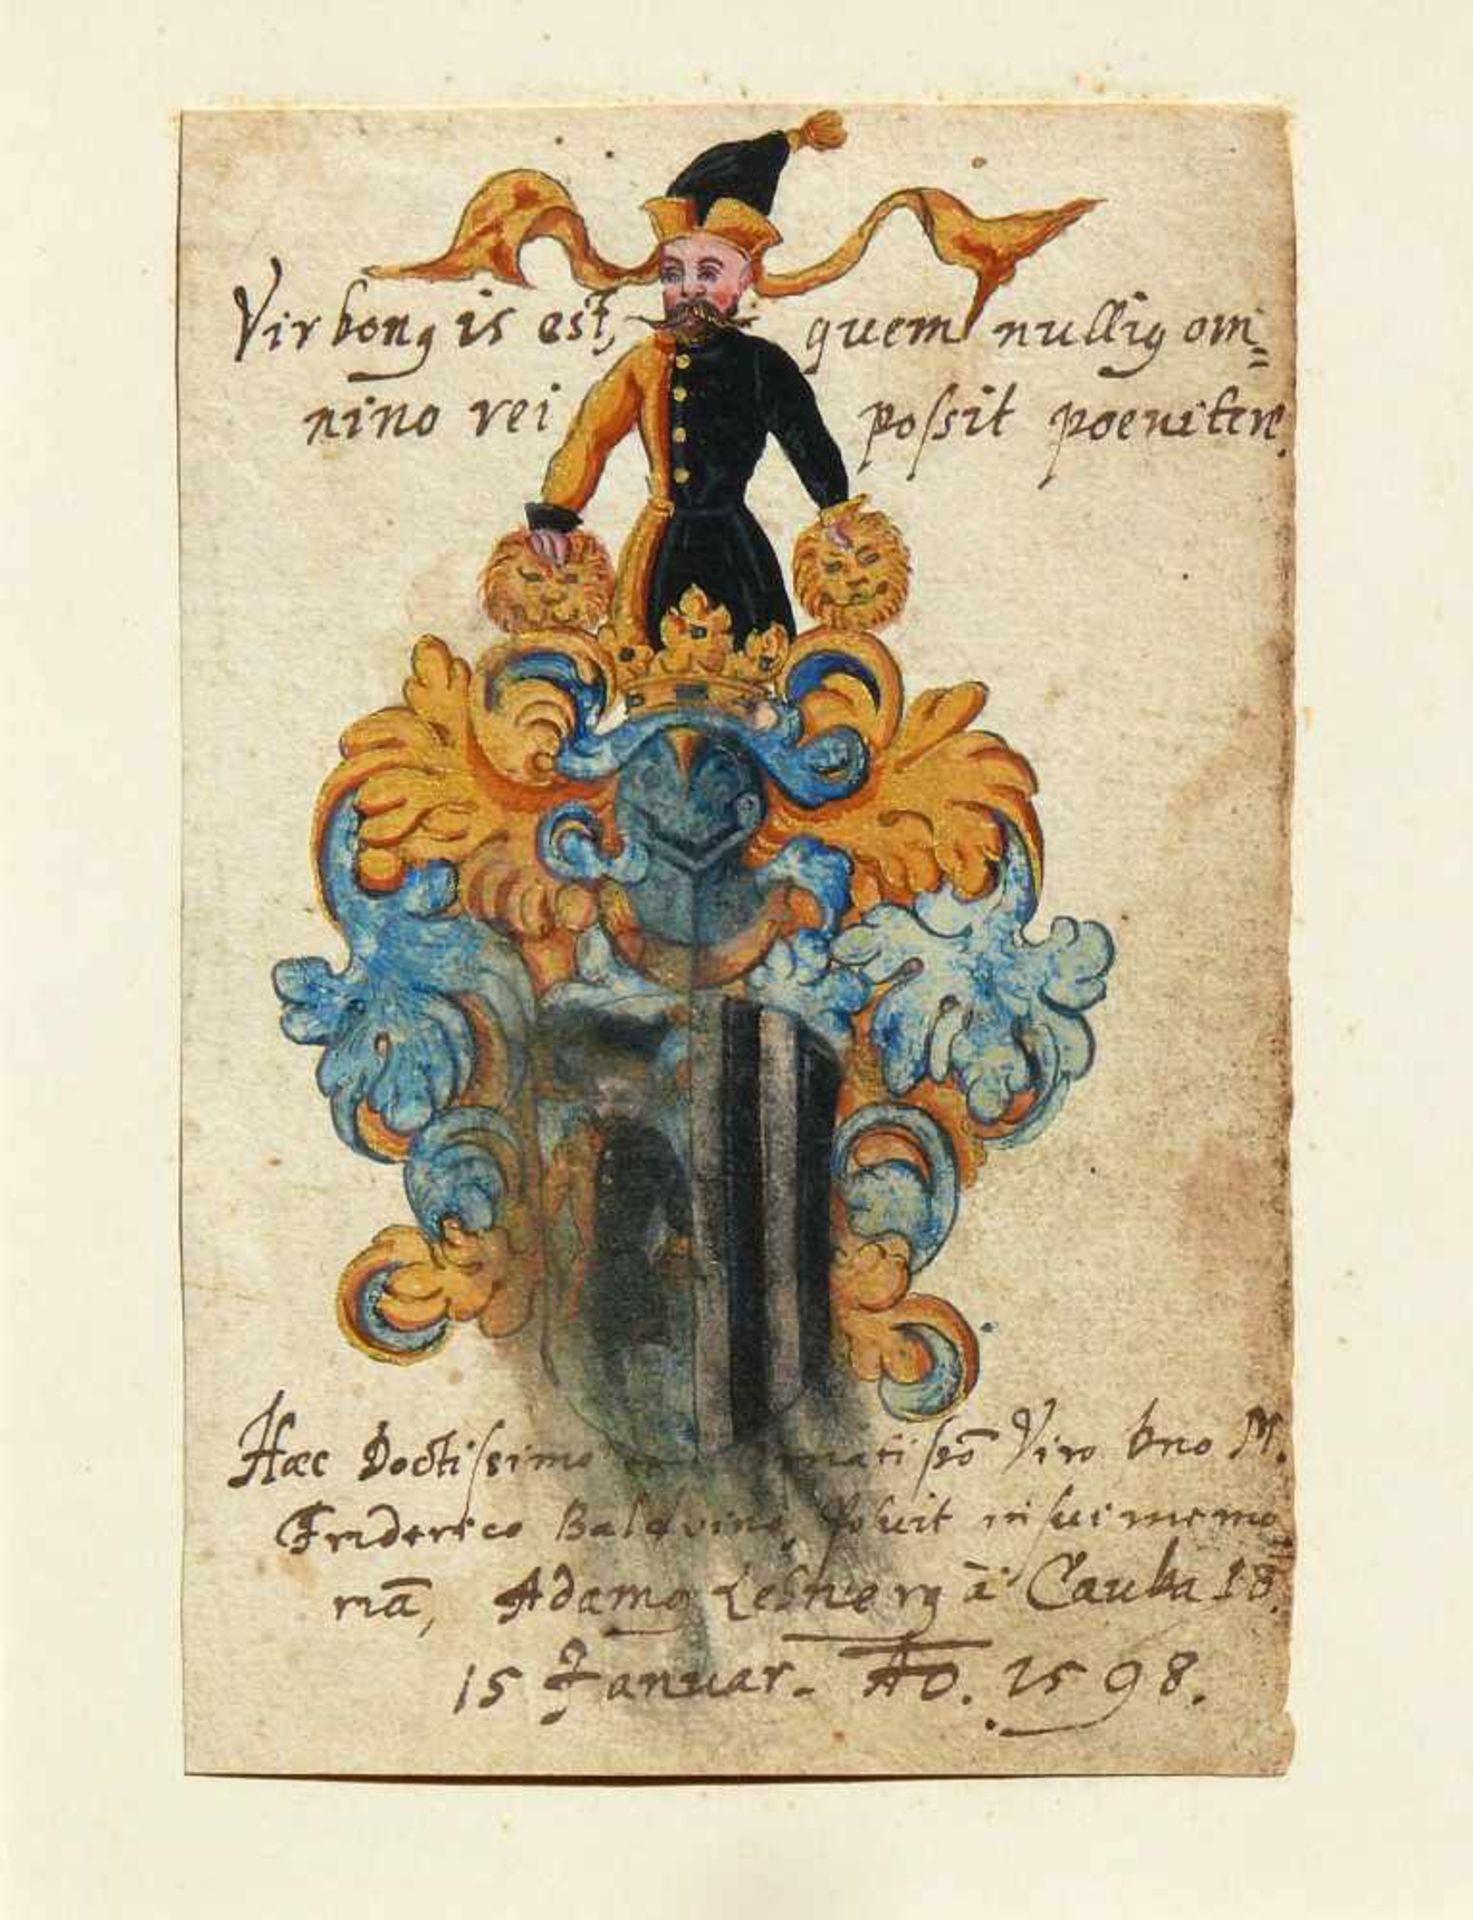 Vir bonꝰ is est, quem nulliꝰ om=
nino rei possit poenitere.
Haec Doctissimo matissō Viro Dno M.
Friderico Balduino, Posuit in sui memo
riā, Adamꝰ à Cauba
15 Januar. Aō. 1598.